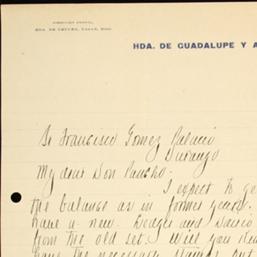 HDA. DE GUADALUPE Y A
Sr Francisco Gomez Palacio
Durango
My dear Don Pancho.
I expect to ge
the balance as in former years.
have a new. and
from the old set. Will you
have the necessary stamps put